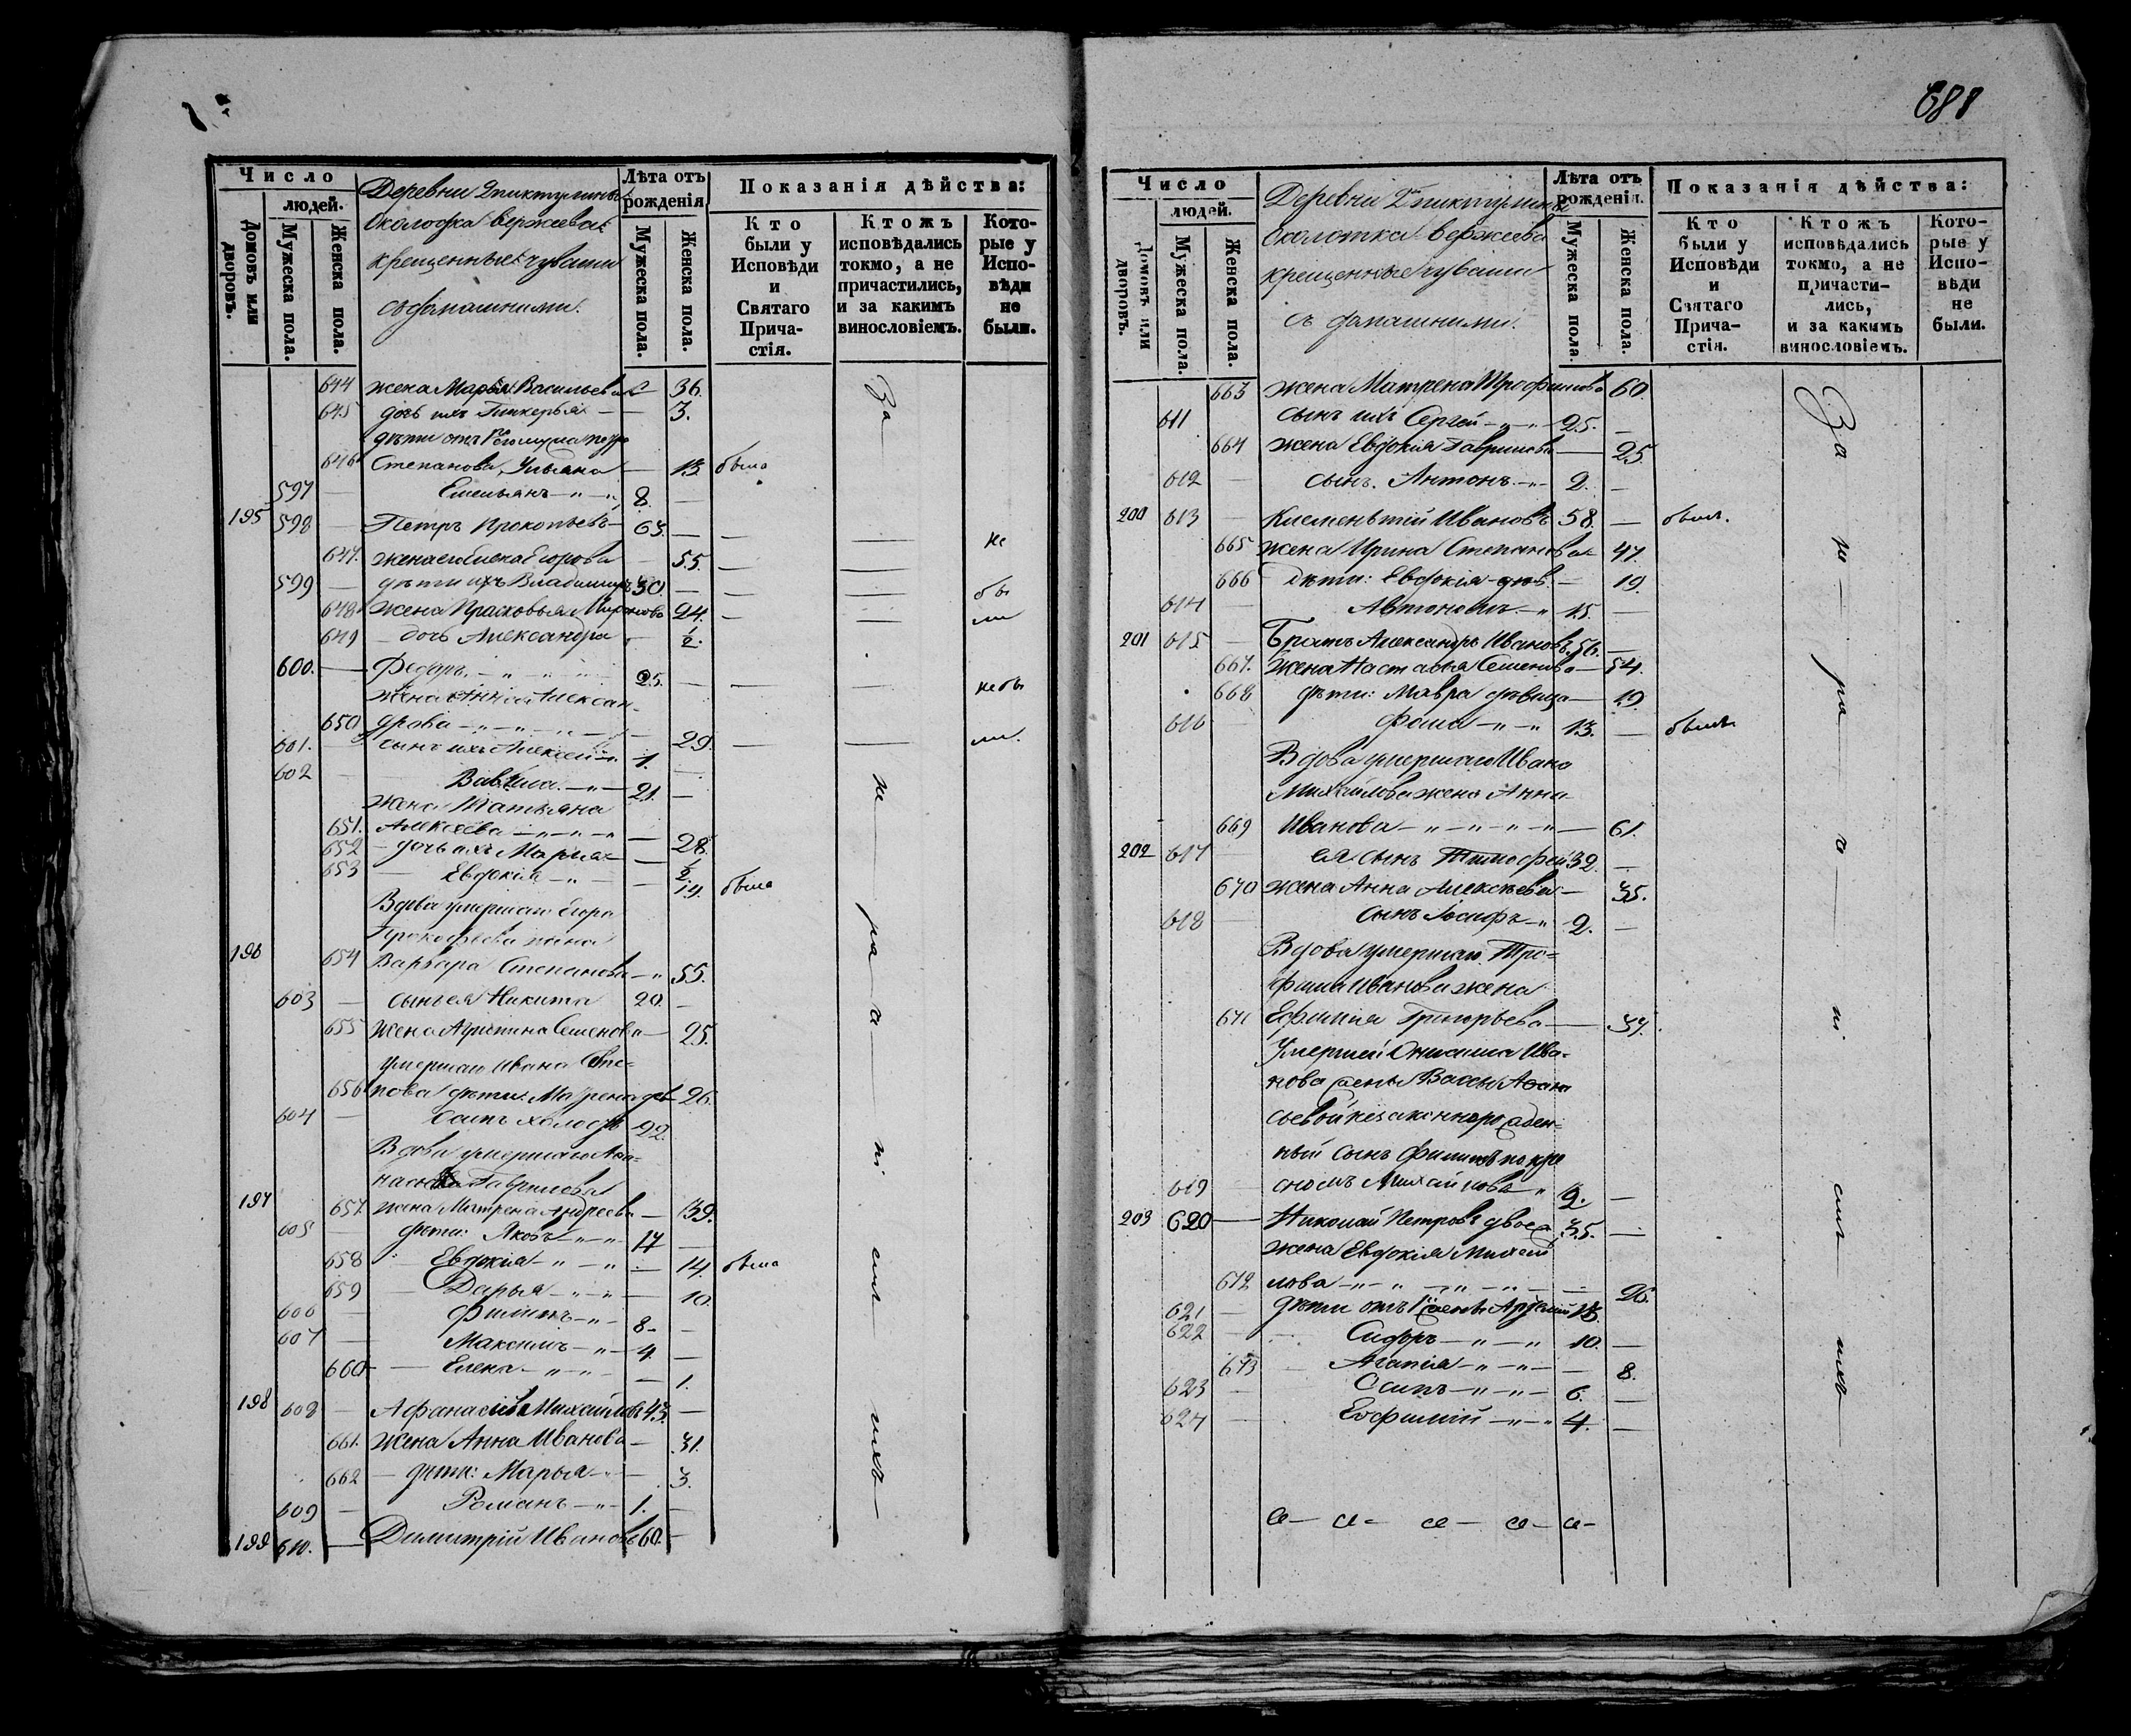 Число
людей.
Домовъ или дворовъ.
Мужеска пола.
Женска пола.
Деревни
крещенные чуваши
съ домашними.
Лѣта отъ рожденія
Мужеска пола.
Женска пола.
Показанія дѣйства:
Кто были у Исповѣди и Святаго Причастія.
Ктожъ исповѣдались токмо, а не причастились, и за какимъ винословіемъ.
Которые у Исповѣди не были.
644 жена Марья Васильева — 36.
645 дочь ихъ — 3.
дѣти отъ 1го мужа
646 Степанова, Ульяна — 13. была
597 — Емельянъ 8. —
195 598 — Петръ Прокопьевъ 63. — не
647. жена его Елена Егорова 55.
599 — дѣти ихъ Владимиръ 30. — бы
648 жена Прасковья Миронова 24. — ли
649 — дочь Александра ½.
600. — Федоръ 25. — не бы
жена Анна Алексан-
650 дрова 29. — ли.
601. сынъ ихъ Алексей 1. —
602 Вавила 21. —
жена Татьяна
651. Алексеева — 28.
652 — дочь ихъ Мария — ½.
653 — Евдокія — 14. была
Вдова умершаго Егора
Прокофьева жена
196 654 Варвара Степанова 55.
603 — сынъ ея Никита 20. —
655 жена Агрипина Семенова — 25.
умершаго Ивана Сте-
656 пова дѣти: Матрена 26.
604 — Осипъ холостъ 22.
Вдова умершаго Афа-
насья Гаврилова
197 657. жена Матрена Андреева — 39.
605 — дѣти: Яковъ 17 —
658 Евдокія — 14. была
659 — Дарья — 10.
606 — Филипъ 8 —
607 — Максимъ 4. —
660 — Елена — 1.
198 608 — Афанасій Михайловъ 43. —
661. жена Анна Иванова — 31.
662 — дѣти: Марья 3.
609 — Романъ 1. —
199 610. — Димитрій Ивановъ 60. —
За не ра с ні ем иемъ
688
Число
людей.
Домовъ или дворовъ.
Мужеска пола.
Женска пола.
Деревни
Околотка
крещенные чуваши
съ домашними.
Лѣта отъ рожденія.
Мужеска пола.
Женска пола.
Показанія дѣйства:
Кто были у Исповѣди и Святаго Причастія.
Ктожъ исповѣдались токмо, а не причастились, и за какимъ винословіемъ.
Которые у Исповѣди не были.
663 жена Матрена Трофимова 60.
611 сынъ ихъ Сергей 25. —
664 жена Евдокія Гаврилова — 25
612 — сынъ Антонъ 2. —
200 613 — Климентій Ивановъ 58. — былъ.
665 жена Ирина Степанова 47.
666 дѣти: Евдокія дѣв. — 19.
614 — Автономъ 15. —
201 615 — Братъ Александръ Ивановъ 56. —
667. жена Настасья Семенова — 54.
668 дѣти: Мавра дѣвица — 19.
616 — Фома 13. — былъ
Вдова умершаго Ивана
Михайлова жена Анна
669 Иванова — 61.
202 617 — ея сынъ Тимофей 32. —
670 жена Анна Алексеева — 35.
618 — сынъ Іосифъ 2. —
Вдова умершаго Тро-
фима Иванова жена
671 Ефимія Григорьева — 37.
Умершей Онисима Ива-
нова жены Вассы Афана
сьевой незаконнорожден-
ный сынъ Филипъ по кре
619 сномъ Михайловъ 2. —
203 620 — Николай Петровъ 35. —
жена Евдокія Михай
672 лова — 26.
621 — дѣти отъ 1й жены
622 Сидоръ 10. —
673 — Агапія — 8.
623 — Осипъ 6. —
624 — Ефимій 4. —